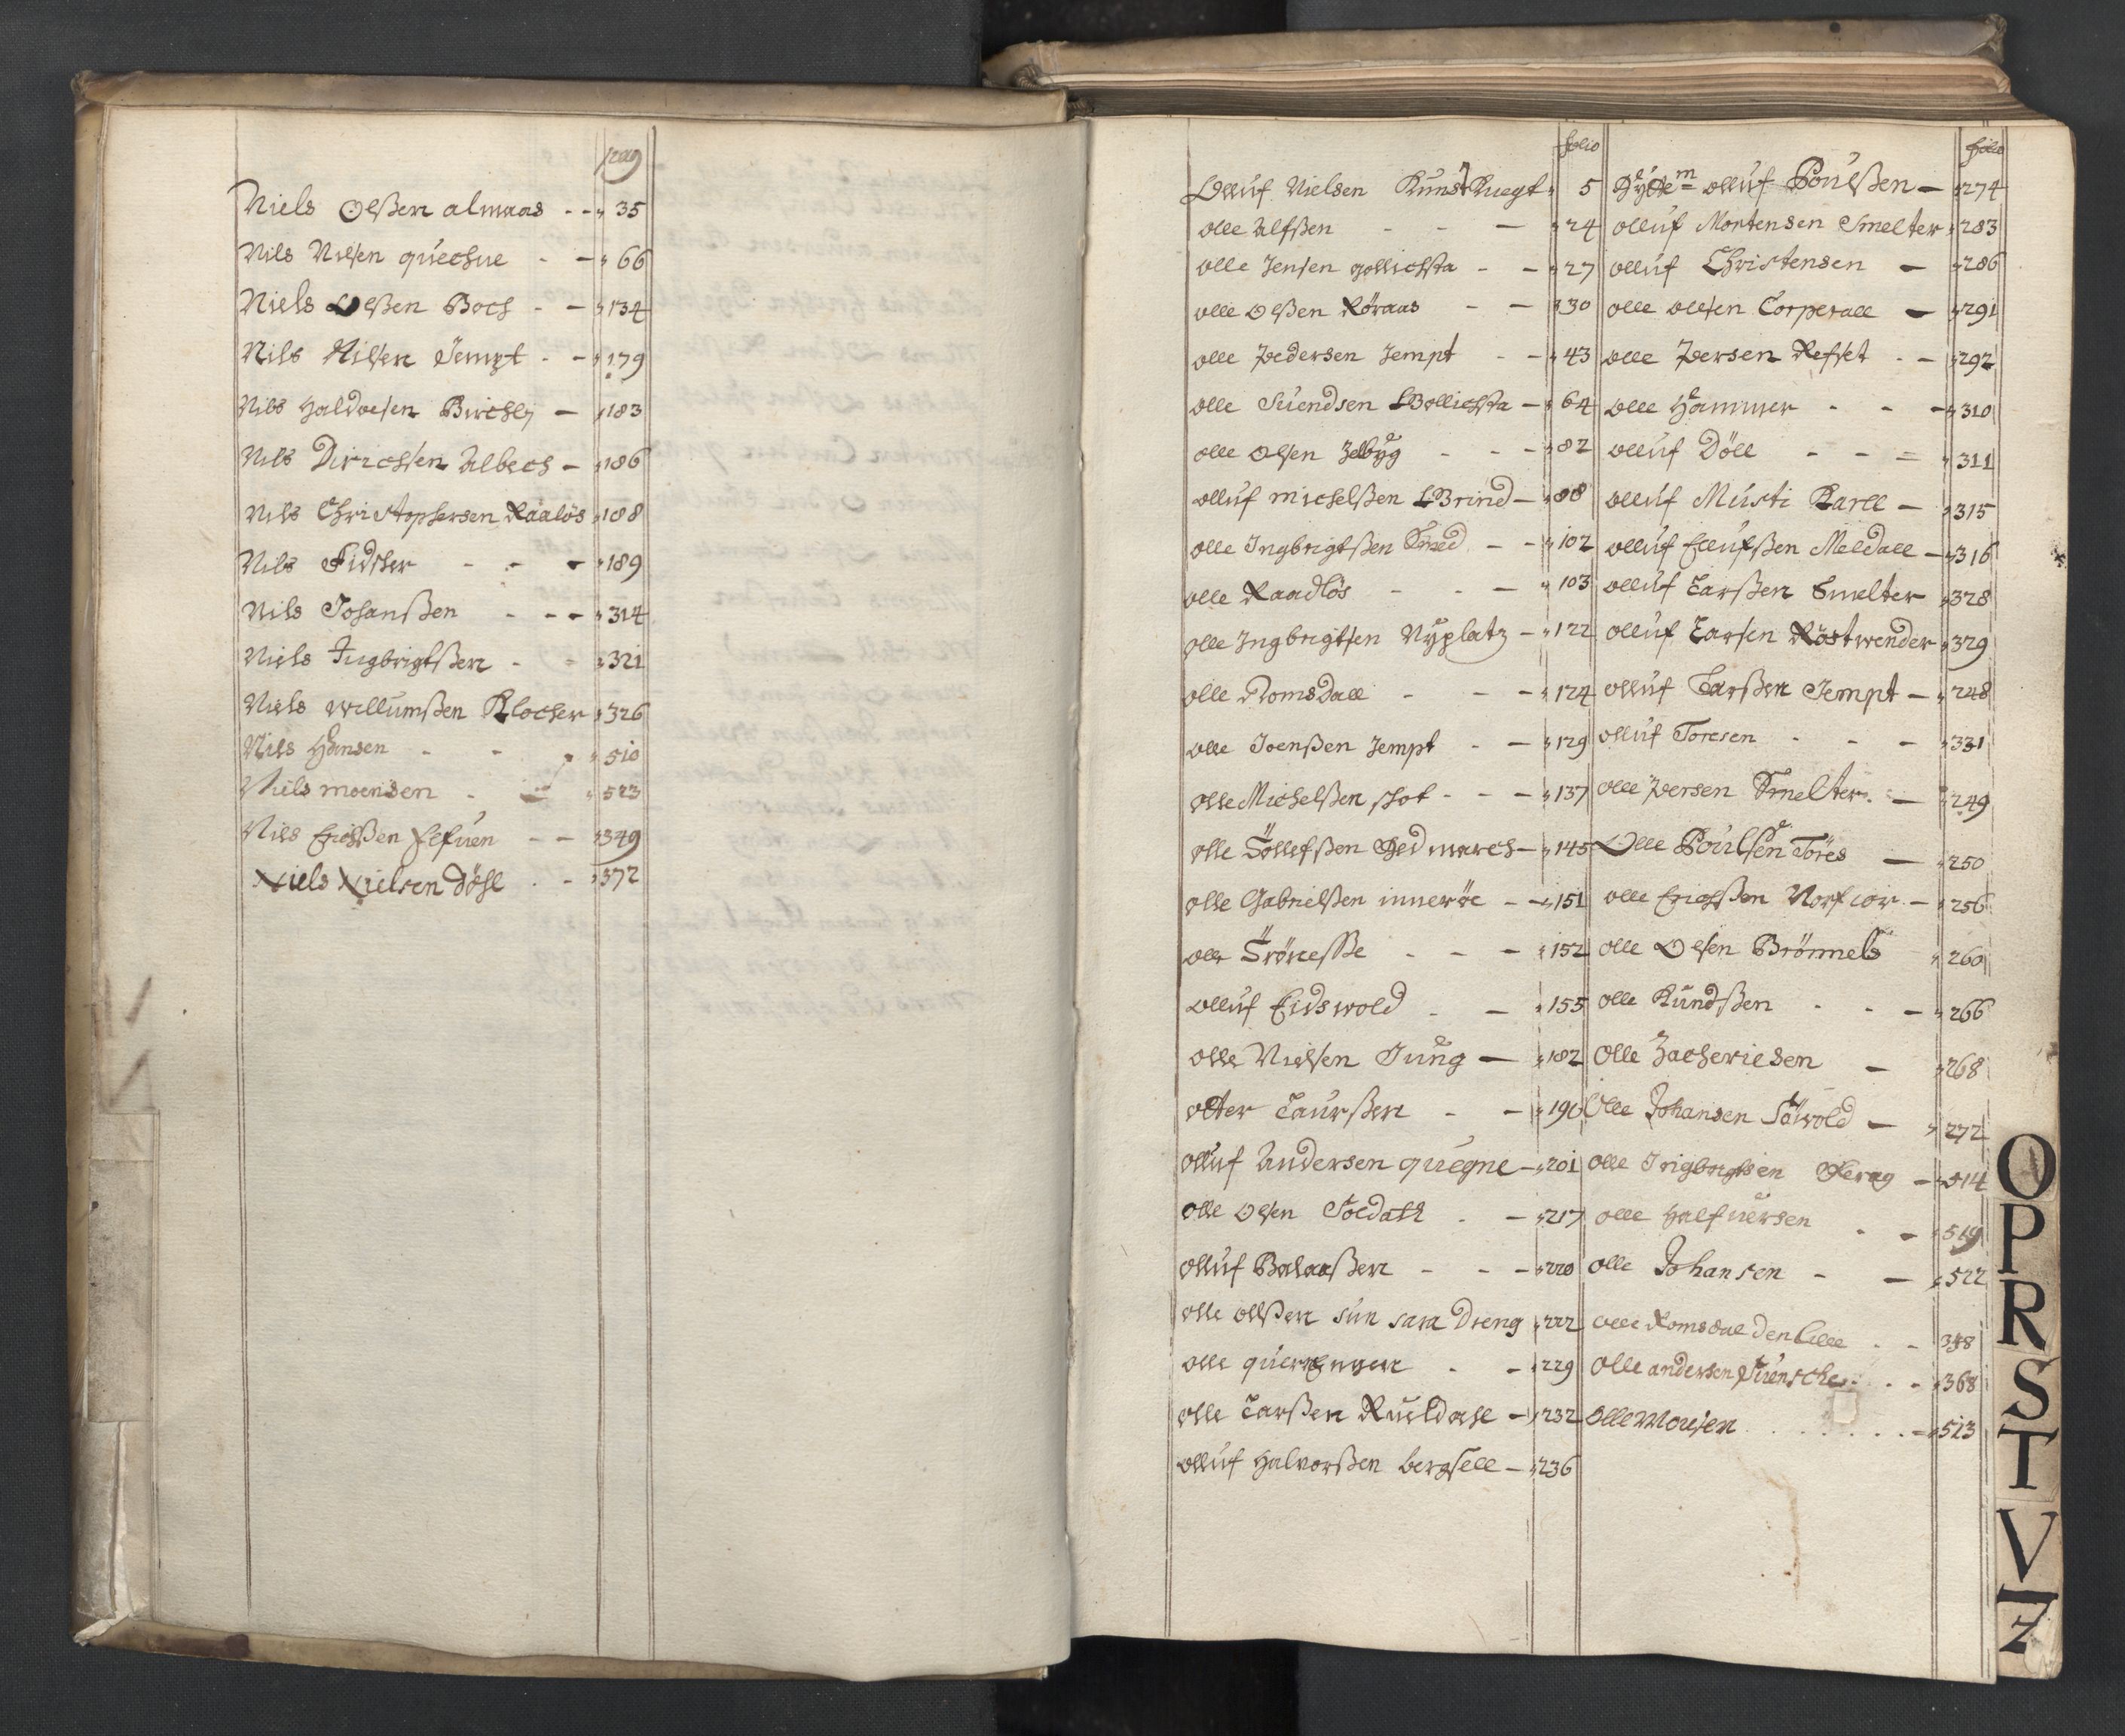 pag
Niels Olßen almaas - - 35
Nils Nilsen quechne - - 66
Niels Olßen Boch - - 134
Nils Nilsen Jempt - - 179
Nils Haldoesen Birchly - 183
Nils Dirichsen Albech - 186
Nils Christophersen Raaløs 188
Nils Fidtler - - - 189
Nils Johanßen - - - 314
Niels Ingbrigtßen - - 321
Niels Willumßen Klocher 326
Nils Hansen - - 510
Niels moensen - - 523
Nils Erichßen Elfuen - - 349
Niels Nielsen döhl - - 372
folio
Olluf Nielsen Kunst Knegt 5
olle Alfßen - - - 24
olle Jensen gollichsta - - 27
olle Olßen Röraas - - 30
olle Pedersen Jempt - - 43
olle Suendsen Bollichsta - 64
olle Olsen Selbyg - - - 82
olluf michelßen Brind - 88
olle Ingbrigtßen Smed - - 102
olle Raadlös - - - 103
olle Ingbrigtsen Nyplatz - 122
olle Romsdall - - - 124
olle Joenßen Jempt - - 129
olle Michelßen skot - - - 137
olle Töllefßen Hedmarch - 145
olle Gabrielßen inneröe - - 151
olle Trönesse - - - 152
olluf Eidswold - - 155
olle Nielsen Jung - 182
olter Laurßen - - 190
olluf Andersen quegne - 201
olle Olsen Soldatt - - 217
olluf Balaaßen - - - 220
olle olßen sun sara Dreng 222
olle - - 229
olle Larßen Rueldahl - 232
olluf Halvorßen bergsell - 236
folio
olluf Poulßen - 274
olluf Mortensen Smelter 283
olluf Christensen - 286
olle ollsen Corporall - 291
olle Persen Refset - - 292
olle Hammer - - - 310
olluf Döll - - - 311
olluf Musti Karll - 315
olluf Ellufßen Meldall - 316
olluf Larßen Smelter 328
olluf Larsen Röstwender 329
olluf Larßen Jempt - 248
olluf Toresen - - - 331
olle Persen Smelter - - 249
Olle Poulsen Töres - 250
olle Erichßen - 256
olle Olsen Brönnels 260
olle Kundßen - - - 266
Olle Zacheriesen - 268
Olle Johansen Säwold - 272
olle Ingbrigtsen - 514
olle Halfuersen - - 519
olle Johansen - - 522
olle Romsdal den lille - - 348
Olle andersen - - 368
Olle Monsen - 513
O
P
R
S
T
V
Z